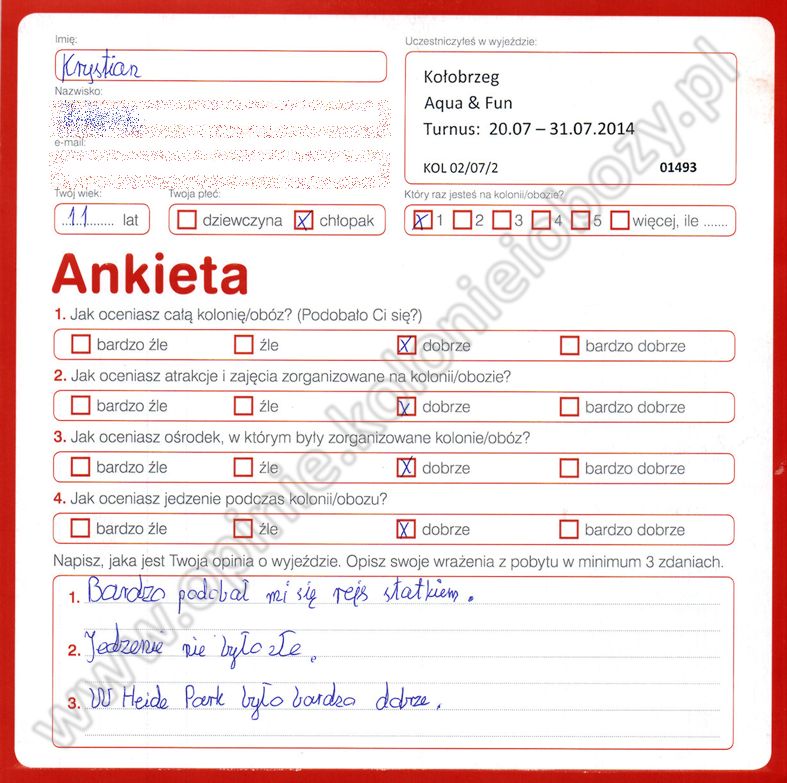 Imię:
Krystian
Nazwisko:
e-mail:
Twój wiek:
11 lat
Twoja płeć:
dziewczyna X chłopak
Uczestniczyłeś w wyjeździe:
Kołobrzeg
Aqua & Fun
Turnus: 20.07 – 31.07.2014
KOL 02/07/2 01493
Który raz jesteś na kolonii/obozie?
X 1 2 3 4 5 więcej, ile .......
Ankieta
1. Jak oceniasz całą kolonię/obóz? (Podobało Ci się?)
bardzo źle źle X dobrze bardzo dobrze
2. Jak oceniasz atrakcje i zajęcia zorganizowane na kolonii/obozie?
bardzo źle źle X dobrze bardzo dobrze
3. Jak oceniasz ośrodek, w którym były zorganizowane kolonie/obóz?
bardzo źle źle X dobrze bardzo dobrze
4. Jak oceniasz jedzenie podczas kolonii/obozu?
bardzo źle źle X dobrze bardzo dobrze
Napisz, jaka jest Twoja opinia o wyjeździe. Opisz swoje wrażenia z pobytu w minimum 3 zdaniach.
1. Bardzo podobał mi się rejs statkiem.
2. Jedzenie nie było złe.
3. W Heide Park było bardzo dobrze.
www.opinie.kolonieiobozy.pl